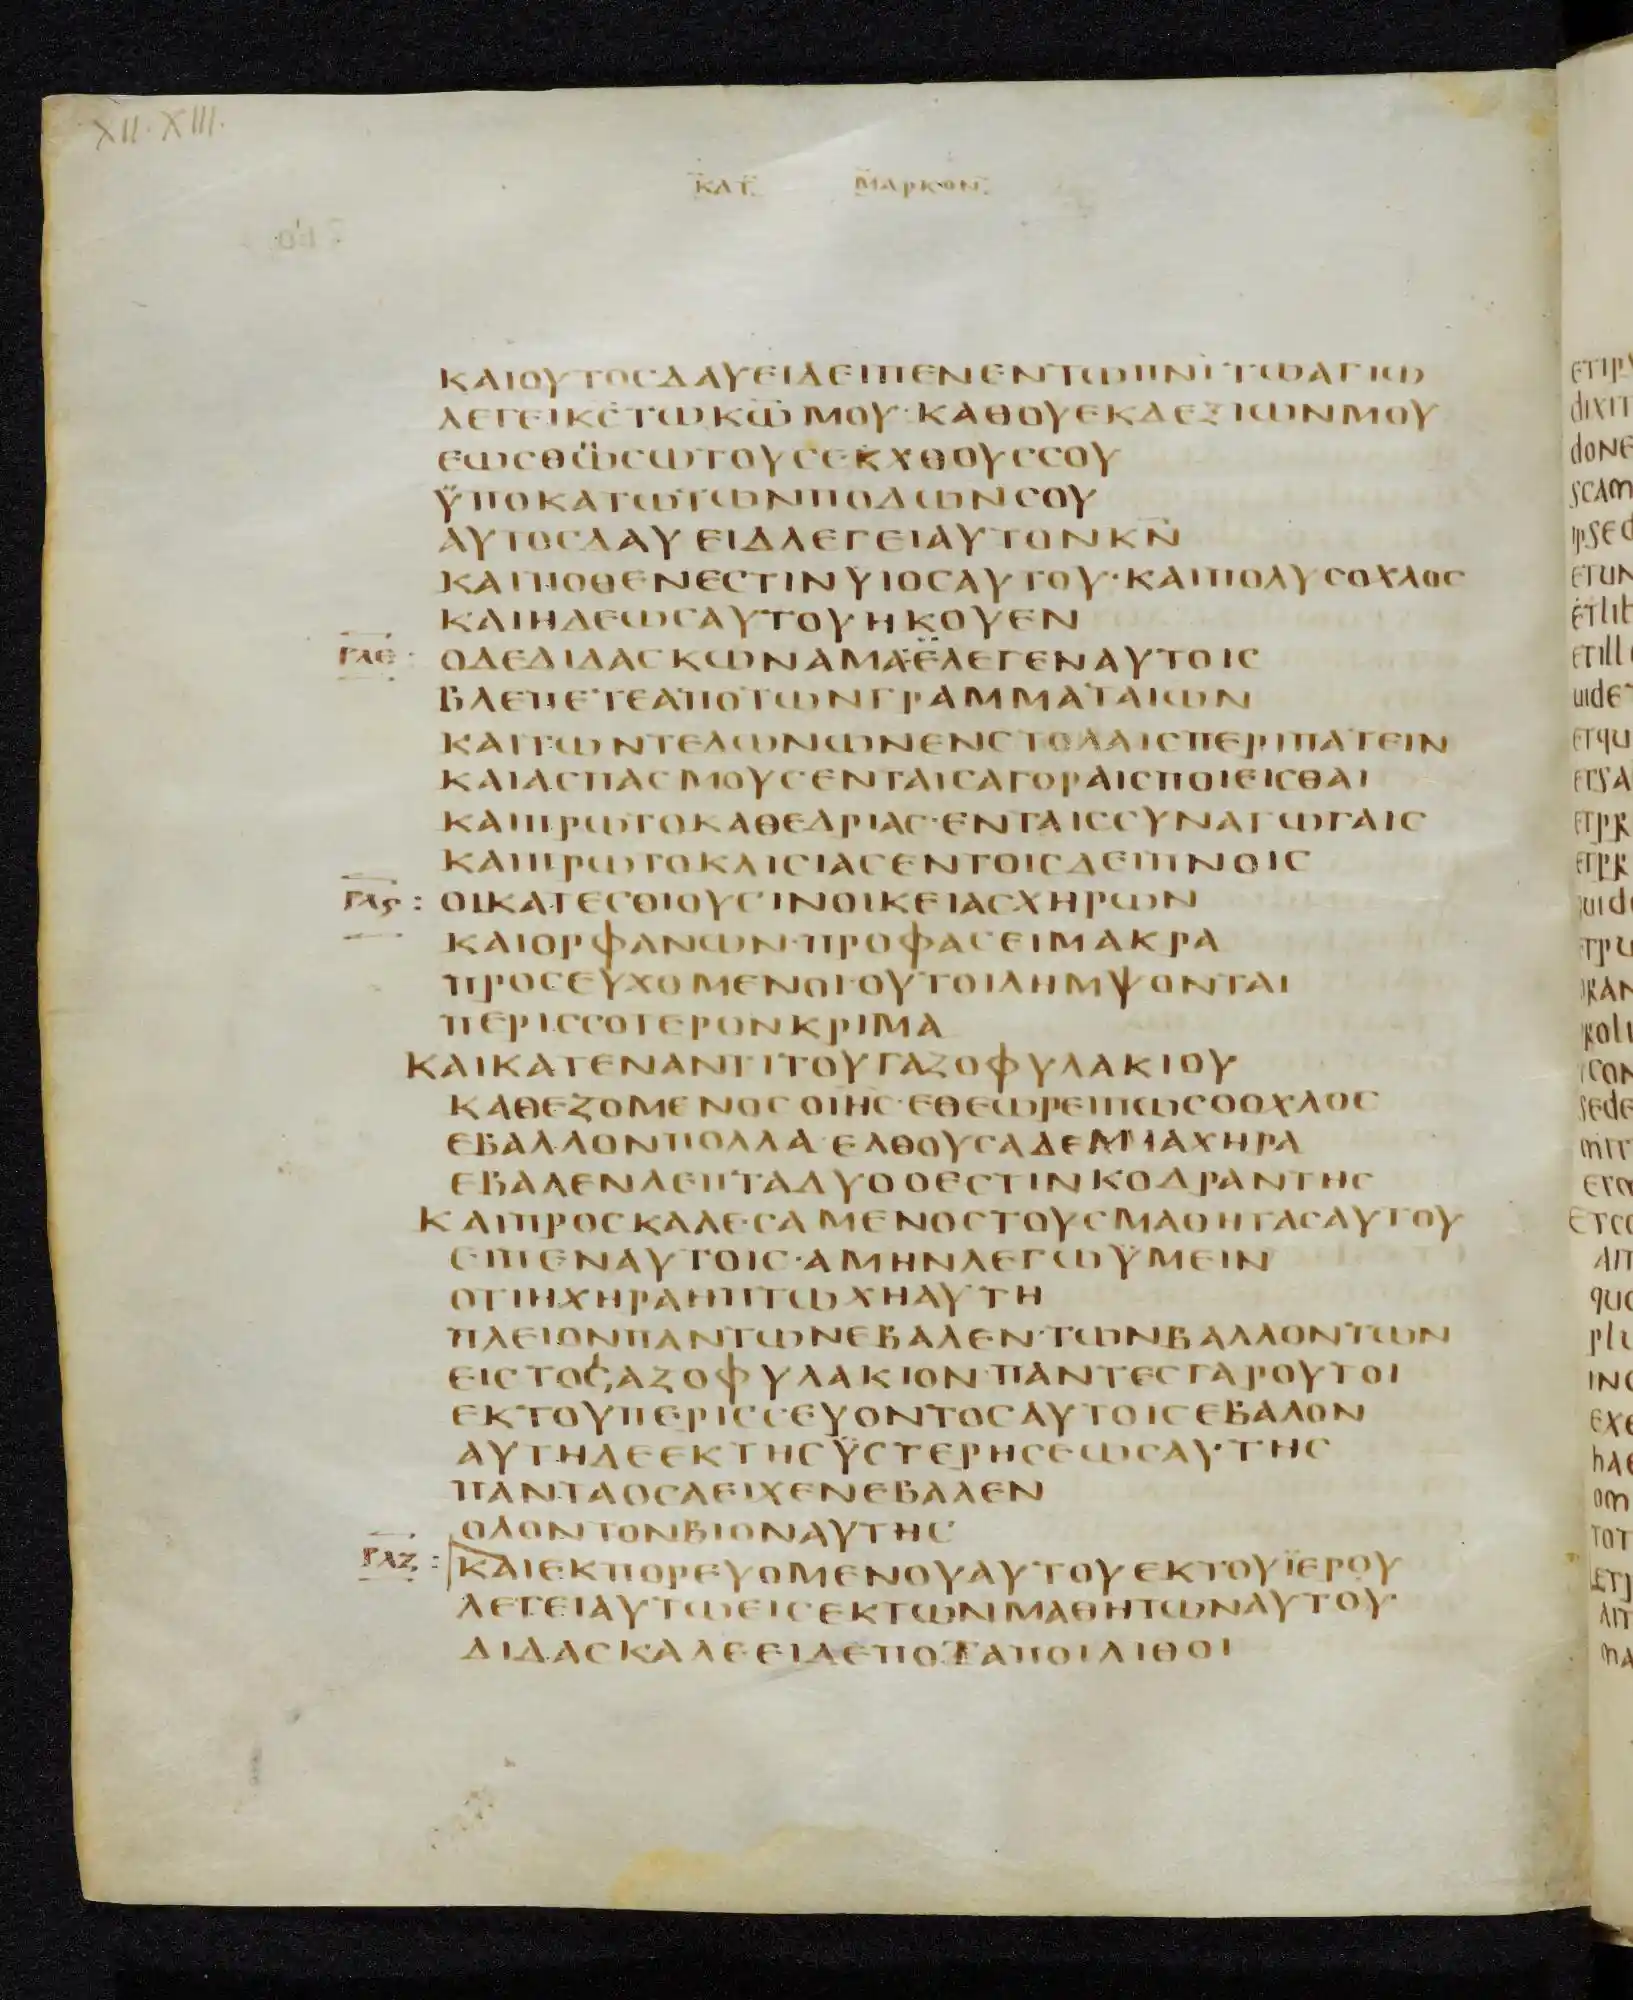 XII. XIII.
ΚΑΤ ΜΑΡΚΟΝ
ΚΑΙΟΥΤΟΣΔΑΥΕΙΔΕΙΠΕΝΕΝΤΩΠΝΙΤΩΑΓΙΩ
ΛΕΓΕΙΚΣΤΩΚΩΜΟΥ·ΚΑΘΟΥΕΚΔΕΞΙΩΝΜΟΥ
ΕΩΣΘΩΣΩΤΟΥΣΕΚΧΘΟΥΣΣΟΥ
ΫΠΟΚΑΤΩΤΩΝΠΟΔΩΝΣΟΥ
ΑΥΤΟΣΔΑΥΕΙΔΛΕΓΕΙΑΥΤΟΝΚΝ
ΚΑΙΠΟΘΕΝΕΣΤΙΝΫΙΟΣΑΥΤΟΥ·ΚΑΙΠΟΛΥΣΟΧΛΟΣ
ΚΑΙΗΔΕΩΣΑΥΤΟΥΗΚΟΥΕΝ
ΓΛΕ· ΟΔΕΔΙΔΑΣΚΩΝΑΜΑΕΛΕΓΕΝΑΥΤΟΙΣ
ΒΛΕΠΕΤΕΑΠΟΤΩΝΓΡΑΜΜΑΤΑΙΩΝ
ΚΑΙΤΩΝΤΕΛΩΝΩΝΕΝΣΤΟΛΑΙΣΠΕΡΙΠΑΤΕΙΝ
ΚΑΙΑΣΠΑΣΜΟΥΣΕΝΤΑΙΣΑΓΟΡΑΙΣΠΟΙΕΙΣΘΑΙ
ΚΑΙΠΡΩΤΟΚΑΘΕΔΡΙΑΣ·ΕΝΤΑΙΣΣΥΝΑΓΩΓΑΙΣ
ΚΑΙΠΡΩΤΟΚΛΙΣΙΑΣΕΝΤΟΙΣΔΕΙΠΝΟΙΣ
ΓΛϚ: ΟΙΚΑΤΕΣΘΙΟΥΣΙΝΟΙΚΕΙΑΣΧΗΡΩΝ
ΚΑΙΟΡΦΑΝΩΝ·ΠΡΟΦΑΣΕΙΜΑΚΡΑ
ΠΡΟΣΕΥΧΟΜΕΝΟΙ·ΟΥΤΟΙΛΗΜΨΟΝΤΑΙ
ΠΕΡΙΣΣΟΤΕΡΟΝΚΡΙΜΑ
ΚΑΙΚΑΤΕΝΑΝΤΙΤΟΥΓΑΖΟΦΥΛΑΚΙΟΥ
ΚΑΘΕΖΟΜΕΝΟΣΟΙΗΣ·ΕΘΕΩΡΕΙΠΩΣΟΟΧΛΟΣ
ΕΒΑΛΛΟΝΠΟΛΛΑ·ΕΛΘΟΥΣΑΔΕΜΙΑΧΗΡΑ
ΕΒΑΛΕΝΛΕΠΤΑΔΥΟΟΕΣΤΙΝΚΟΔΡΑΝΤΗΣ
ΚΑΙΠΡΟΣΚΑΛΕΣΑΜΕΝΟΣΤΟΥΣΜΑΘΗΤΑΣΑΥΤΟΥ
ΕΙΠΕΝΑΥΤΟΙΣ·ΑΜΗΝΛΕΓΩΫΜΕΙΝ
ΟΤΙΗΧΗΡΑΗΠΤΩΧΗΑΥΤΗ
ΠΛΕΙΟΝΠΑΝΤΩΝΕΒΑΛΕΝ·ΤΩΝΒΑΛΛΟΝΤΩΝ
ΕΙΣΤΟΓΑΖΟΦΥΛΑΚΙΟΝ·ΠΑΝΤΕΣΓΑΡΟΥΤΟΙ
ΕΚΤΟΥΠΕΡΙΣΣΕΥΟΝΤΟΣΑΥΤΟΙΣΕΒΑΛΟΝ
ΑΥΤΗΔΕΕΚΤΗΣΫΣΤΕΡΗΣΕΩΣΑΥΤΗΣ
ΠΑΝΤΑΟΣΑΕΙΧΕΝΕΒΑΛΕΝ
ΟΛΟΝΤΟΝΒΙΟΝΑΥΤΗΣ
ΓΛΖ: ΚΑΙΕΚΠΟΡΕΥΟΜΕΝΟΥΑΥΤΟΥΕΚΤΟΥΪΕΡΟΥ
ΛΕΓΕΙΑΥΤΩΕΙΣΕΚΤΩΝΜΑΘΗΤΩΝΑΥΤΟΥ·
ΔΙΔΑΣΚΑΛΕΕΙΔΕΠΟΤΑΠΟΙΛΙΘΟΙ